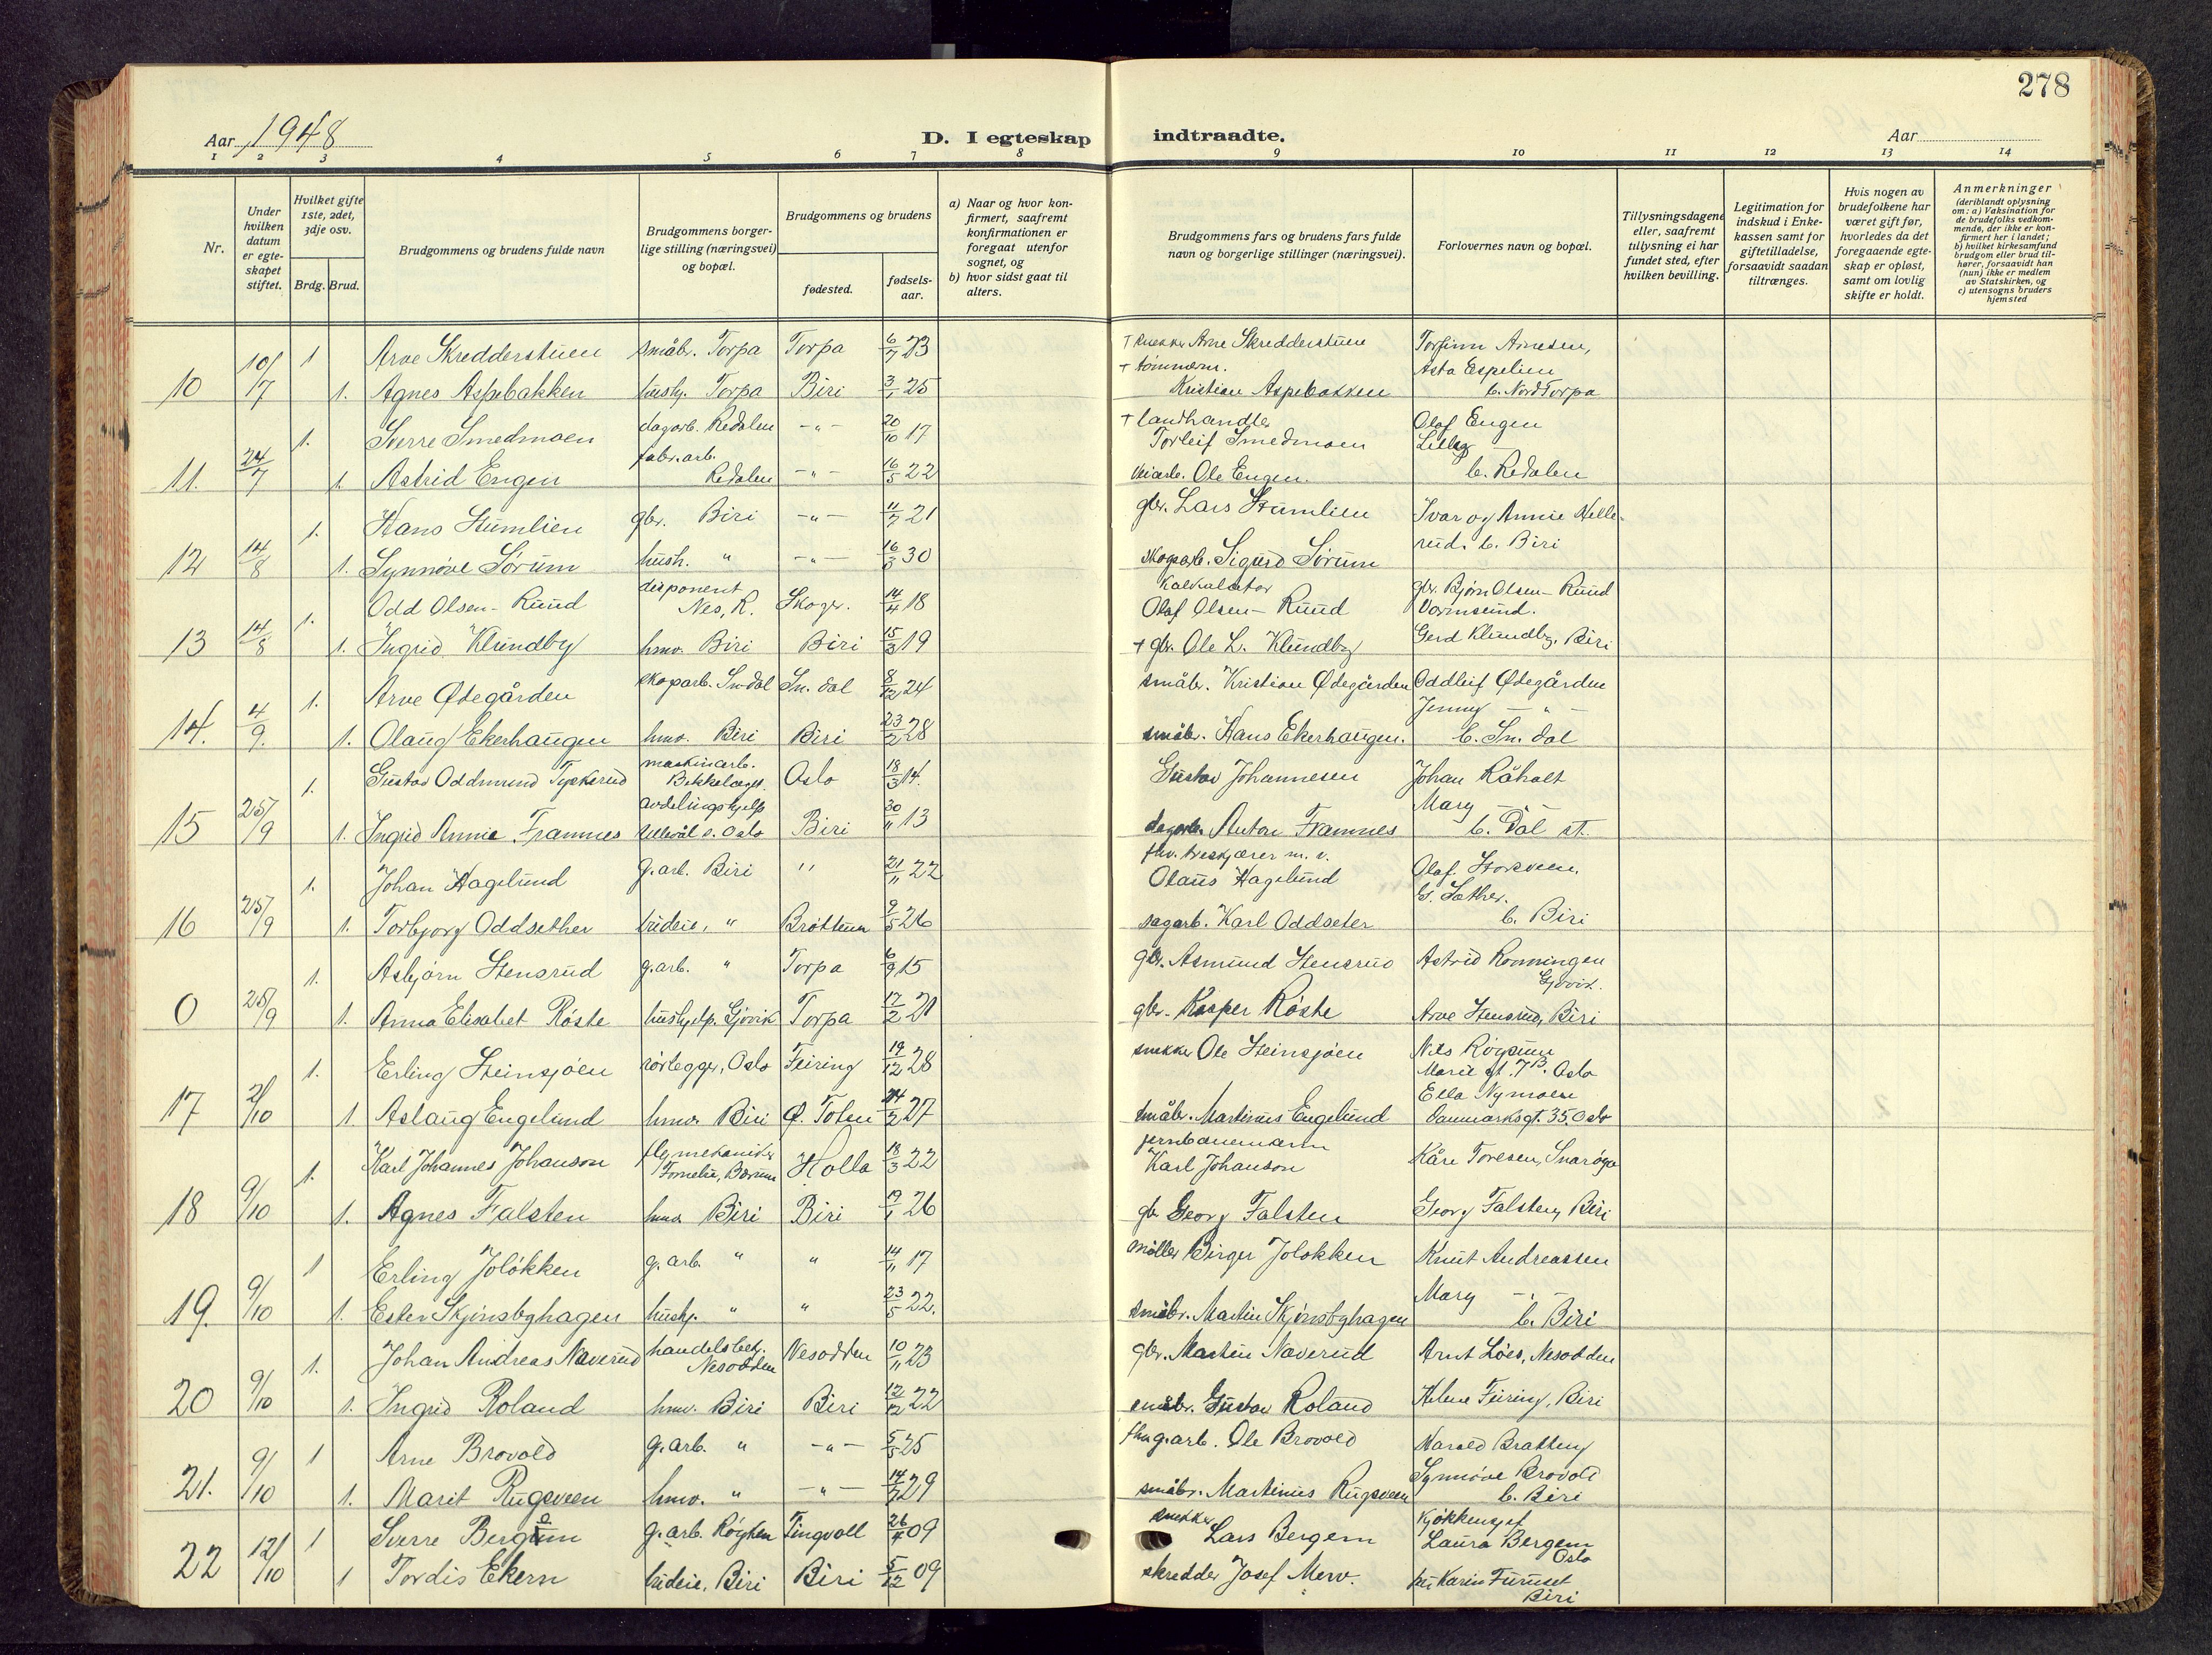 278
Aar 1948
D. I egteskap indtraadte.
Aar
1 2 3 4 5 6 7 8 9 10 11 12 13 14
Nr.
Under hvilken datum er egteskapet stiftet.
Hvilket gifte 1ste, 2det, 3dje osv.
Brdg. Brud.
Brudgommens og brudens fulde navn
Brudgommens borgerlige stilling (næringsvei) og bopæl.
Brudgommens og brudens
fødested.
fødselsaar.
a) Naar og hvor konfirmert, saafremt konfirmationen er foregaat utenfor sognet, og
b) hvor sidst gaat til alters.
Brudgommens fars og brudens fars fulde navn og borgerlige stillinger (næringsvei).
Forlovernes navn og bopæl.
Tillysningsdagene eller, saafremt tillysning ei har fundet sted, efter hvilken bevilling.
Legitimation for indskud i Enkekassen samt for giftetilladelse, forsaavidt saadan tiltrænges.
Hvis nogen av brudefolkene har været gift før, hvorledes da det foregaaende egteskap er opløst, samt om lovlig skifte er holdt.
Anmerkninger (deriblandt oplysning om: a) Vaksination for de brudefolks vedkommende, der ikke er konfirmert her i landet; b) hvilket kirkesamfund brudgom eller brud tilhører, forsaavidt han (hun) ikke er medlem av Statskirken, og c) utensogns bruders hjemsted
10/ 1 Arve Skredderstuen småbr. Torpa Torpa 6/7 23 † snekker Arne Skredderstuen Torfinn Arnesen,
10 7 1. Agnes Aspebakken hushj. Torpa Biri 3/1 25 † tømmerm. Kristian Aspebakken Asta Espelien b. Nord Torpa
1. Sverre Smedmoen dagarb. Redalen -"- 20/10 17 † landhandler Torleif Smedmoen Olaf Engen
11. 24/7 1. Astrid Engen fabr.arb. Redalen -"- 16/5 22 veiarb. Ole Engen. b. Redalen
1. Hans Stumlien gbr. Biri -"- 11/7 21 gbr. Lars Stumlien Ivar og Annie Helle-
12 14/8 1. Synnøve Sørum hush. " -"- 16/3 30 skogarb. Sigurd Sørum rud. b. Biri
1. Odd Olsen-Ruud disponent Nes, R. Skoger. 14/4 18 kalkulator Olaf Olsen-Ruud gbr. Bjørn Olsen-Ruud Vormsund.
13 14/8 1. Ingrid Klundby hmv. Biri Biri 15/3 19 † gbr. Ole L. Klundby Gerd Klundby, Biri
1. Arve Ødegården skogarb. Sn.dal Sn. dal 8/12 24 småbr. Kristian Ødegården Oddleif Ødegården
14. 4/9. 1. Olaug Ekerhaugen hmv. Biri Biri 23/2 28 småbr. Hans Ekerhaugen. Jenny -"- b. Sn. dal
1. Gustav Oddmund Tyskerud maskinarb. Bekkelaget. Oslo 18/3 14. Gustav Johannesen Johan Råholt
15 25/9 1. Ingrid Annie Framnes avdelingshjelp Ullevål s. Oslo Biri 30/11 13 dagarb. Anton Framnes Mary -"- b. Dal st.
1. Johan Hagelund g.arb. Biri " 21/11 22 fhv. treskjærer m. v. Olaus Hagelund Olaf Storsveen.
16 25/9 1. Torbjørg Oddsether budeie, " Brøttum 9/5 26 sagarb. Karl Oddseter G. Sether. b. Biri
1. Asbjørn Stensrud g.arb. " Torpa 6/9 15 gbr. Asmund Stensrud Astrid Rønningen Gjøvik.
0 25/9 1. Anna Elisabet Røste hushjelp. Gjøvik Torpa 17/2 21 gbr. Kasper Røste Arve Stensrud, Biri
1. Erling Steinsjøen rørlegger, Oslo Feiring 19/12 28 snekker Ole Steinsjøen Marie gt. 7B. Oslo
17 2/10 1. Aslaug Engelund hmv. Biri Ø. Toten 14/2 27 småbr. Martinius Engelund Ella Nymoen Danmarksgt. 35, Oslo
1. Karl Johannes Johanson flymekaniker Fornebu, Bærum Holla 18/3 22 jernbanemann Karl Johanson Kåre Toresen, Snarøya
18 9/10 1. Agnes Falsten hmv Biri Biri 19/1 26 gbr Georg Falsten Georg Falsten, Biri
1 Erling Joløkken g.arb. " " 14/11 17 møller Birger Joløkken Knut Andreassen
19. 9/10 1. Ester Skjønsbyhagen hushj. " " 23/5 22. småbr. Martin Skjønsbyhagen Mary -"- b. Biri
1. Johan Andreas Naverud handelsbetj. Nesodden Nesodden 10/11 23 gbr. Martin Naverud Arnt Løes, Nesodden
20 9/10 1. Ingrid Roland hmv. Biri Biri 12/12 22 småbr. Gustav Roland Helene Feiring, Biri
1 Arne Brovold g.arb. " -"- 5/5 25 fhv g.arb. Ole Brovold Harald Bratteng
21. 9/10 1. Marit Rugsveen hmv. " -"- 14/7 29 småbr. Martinius Rugsveen Synnøve Brovold b. Biri
1 Sverre Bergem g.arb. Røyken Tingvoll 26/4 09 snekker Lars Bergem Kjøkkensjef Laura Bergem Oslo
22 12/10 1 Tordis Ekern budeie, Biri Biri 5/12 09 skredder Josef Merv. fru Karin Furuset Biri